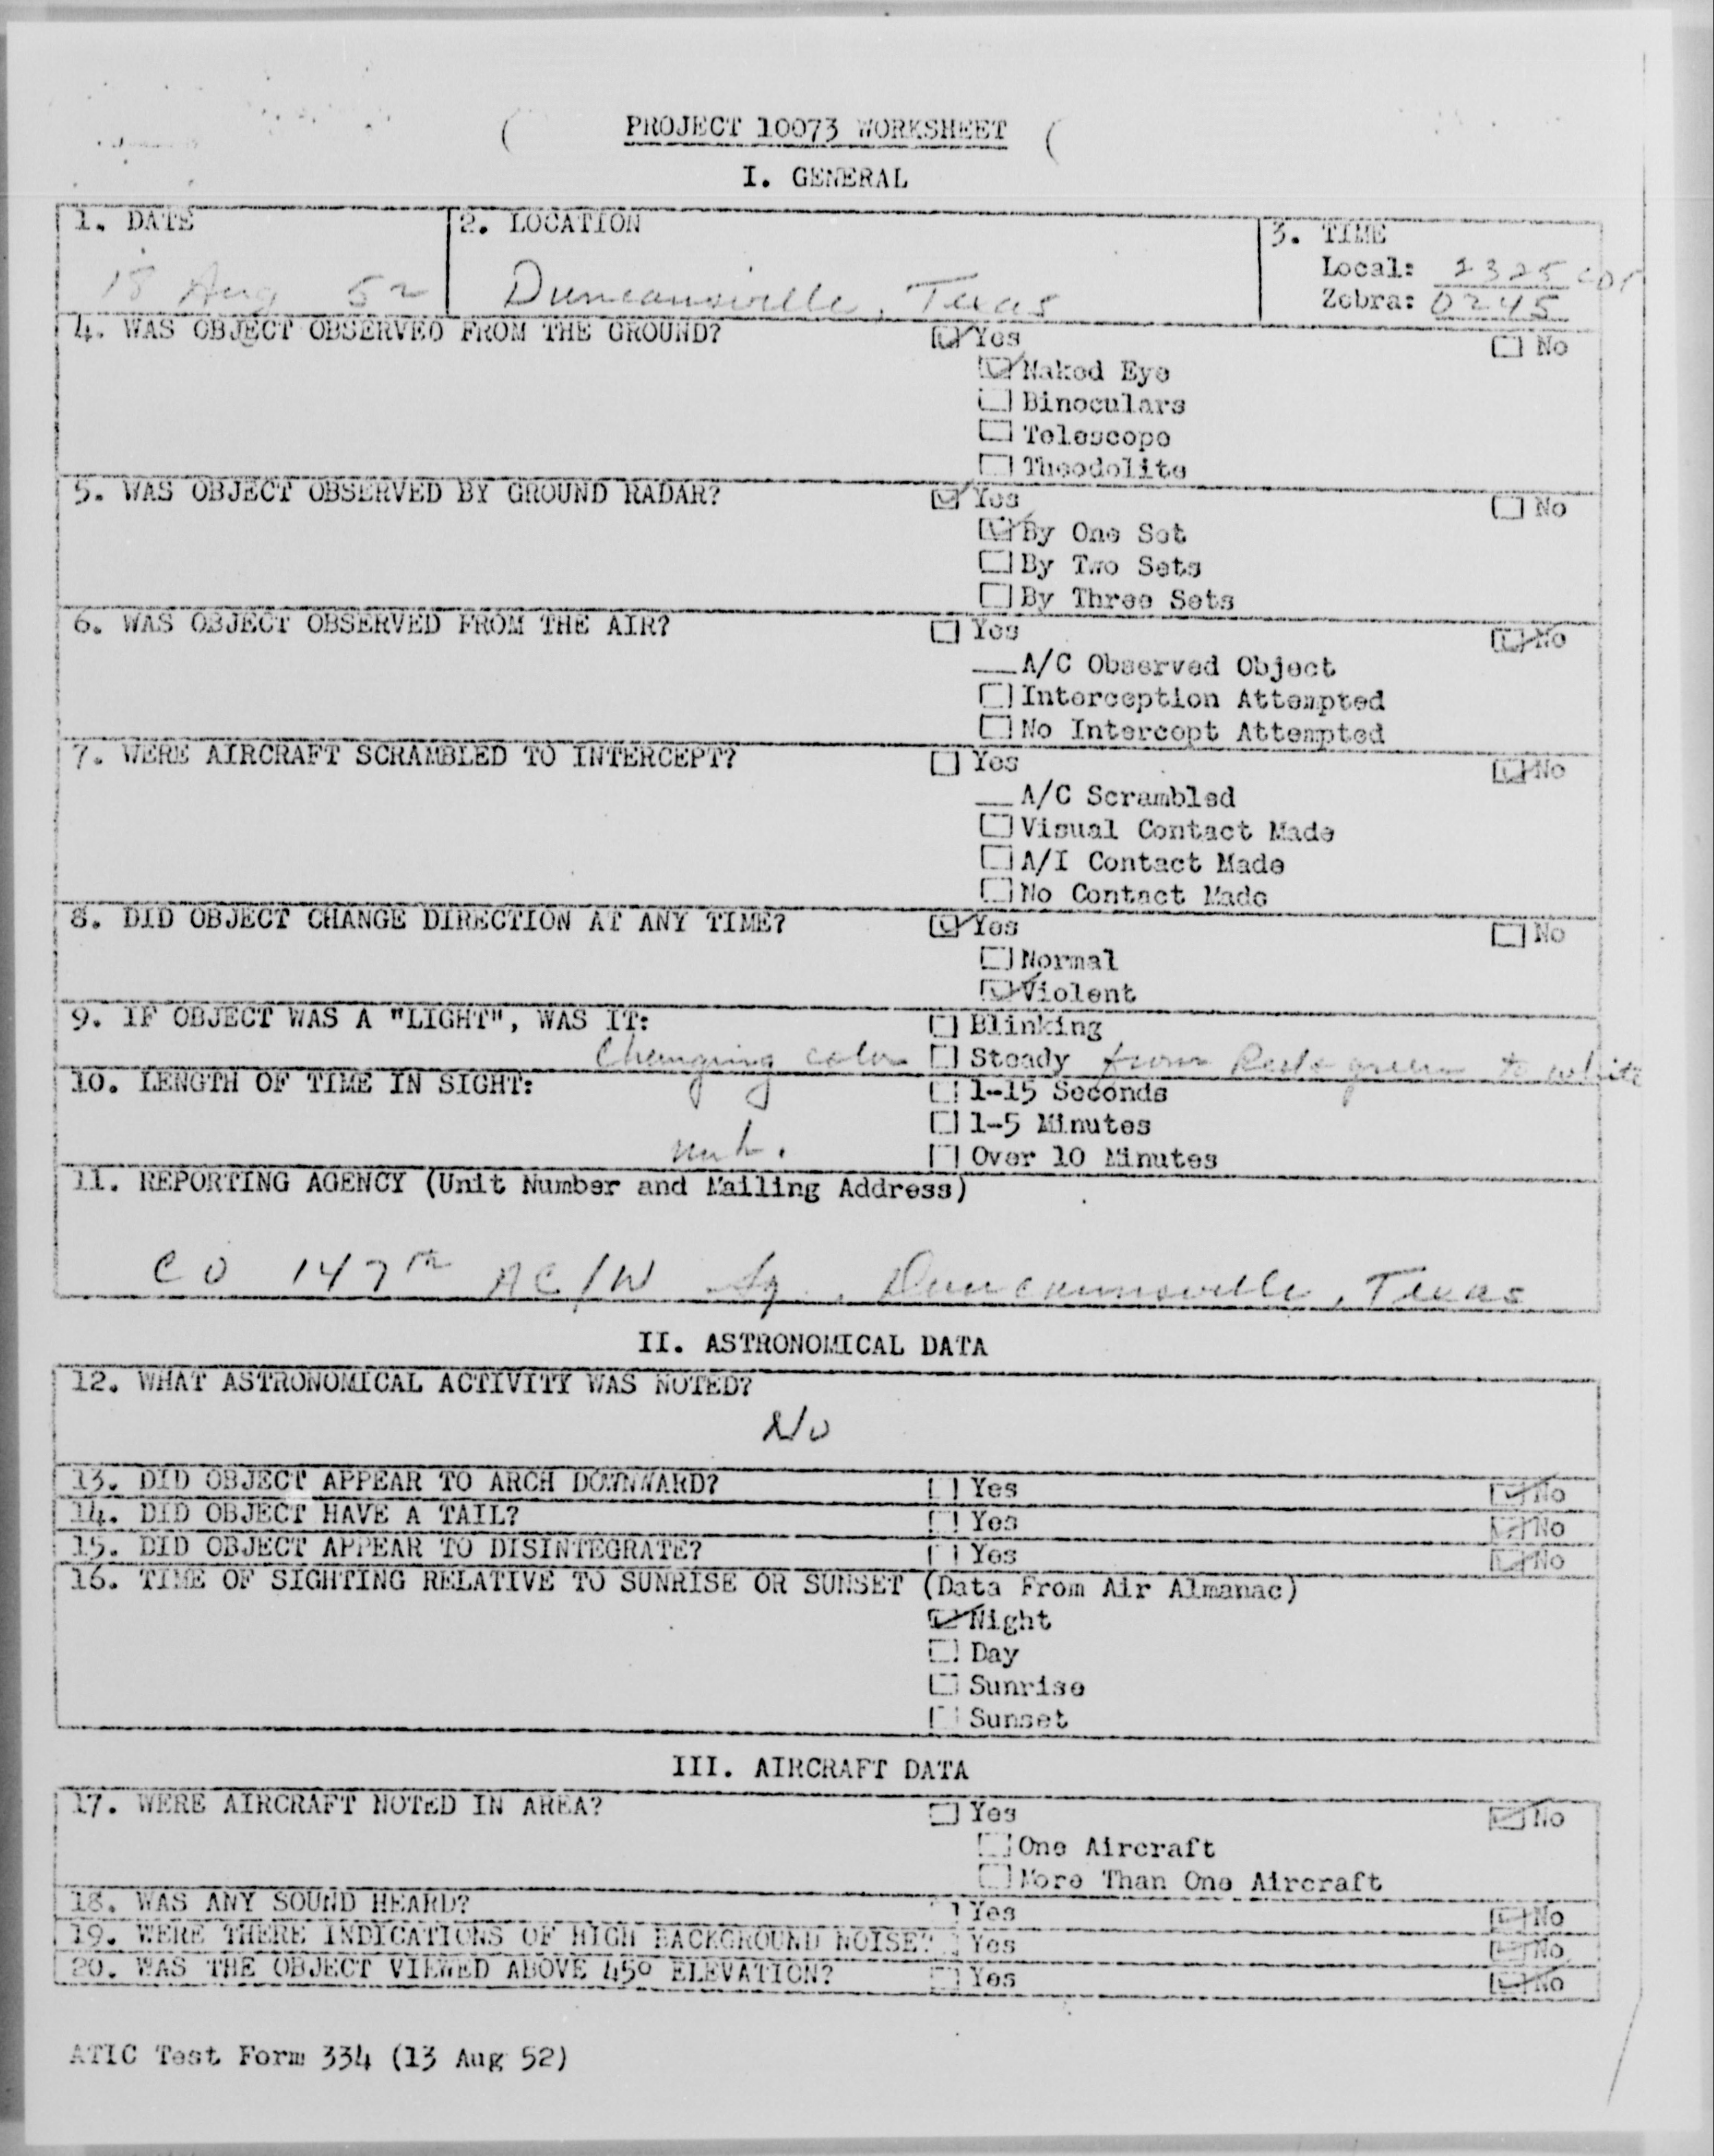 PROJECT 10073 WORKSHEET
I. GENERAL
1. DATE
18 Aug 52
2. LOCATION
Duncansville, Texas
3. TIME
Local: 2325 CDT
Zebra: 0245
4. WAS OBJECT OBSERVED FROM THE GROUND? Yes No
Naked Eye
Binoculars
Telescope
Theodolite
5. WAS OBJECT OBSERVED BY GROUND RADAR? Yes No
By One Set
By Two Sets
By Three Sets
6. WAS OBJECT OBSERVED FROM THE AIR? Yes No
A/C Observed Object
Interception Attempted
No Intercept Attempted
7. WERE AIRCRAFT SCRAMBLED TO INTERCEPT? Yes No
A/C Scrambled
Visual Contact Made
A/I Contact Made
No Contact Made
8. DID OBJECT CHANGE DIRECTION AT ANY TIME? Yes No
Normal
Violent
9. IF OBJECT WAS A "LIGHT", WAS IT: Blinking
Changing color Steady from Red to green to white
10. LENGTH OF TIME IN SIGHT: 1-15 Seconds
1-5 Minutes
Over 10 Minutes
11. REPORTING AGENCY (Unit Number and Mailing Address)
CO 147th AC/W Sq, Duncannsville, Texas
II. ASTRONOMICAL DATA
12. WHAT ASTRONOMICAL ACTIVITY WAS NOTED?
No
13. DID OBJECT APPEAR TO ARCH DOWNWARD? Yes No
14. DID OBJECT HAVE A TAIL? Yes No
15. DID OBJECT APPEAR TO DISINTEGRATE? Yes No
16. TIME OF SIGHTING RELATIVE TO SUNRISE OR SUNSET (Data From Air Almanac)
Night
Day
Sunrise
Sunset
III. AIRCRAFT DATA
17. WERE AIRCRAFT NOTED IN AREA? Yes No
One Aircraft
More Than One Aircraft
18. WAS ANY SOUND HEARD? Yes No
19. WERE THERE INDICATIONS OF HIGH BACKGROUND NOISE? Yes No
20. WAS THE OBJECT VIEWED ABOVE 45° ELEVATION? Yes No
ATIC Test Form 334 (13 Aug 52)